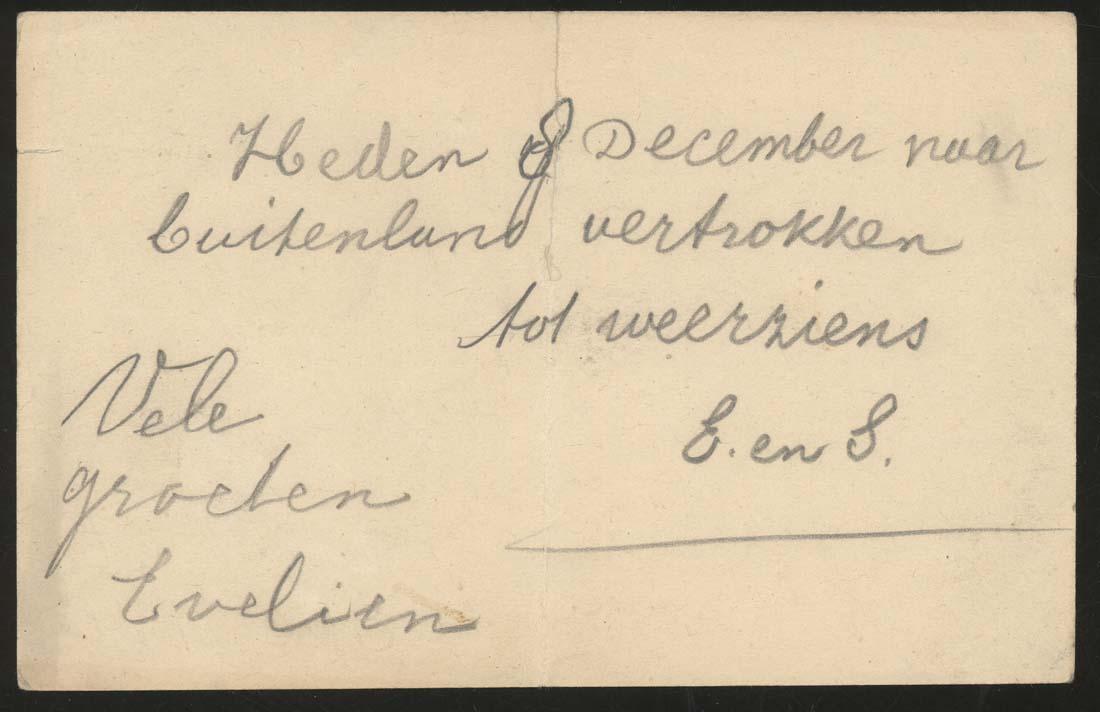 Heden 8 December naar
buitenland vertrokken
tot weerziens
E. en S.
Vele
groeten
Evelien